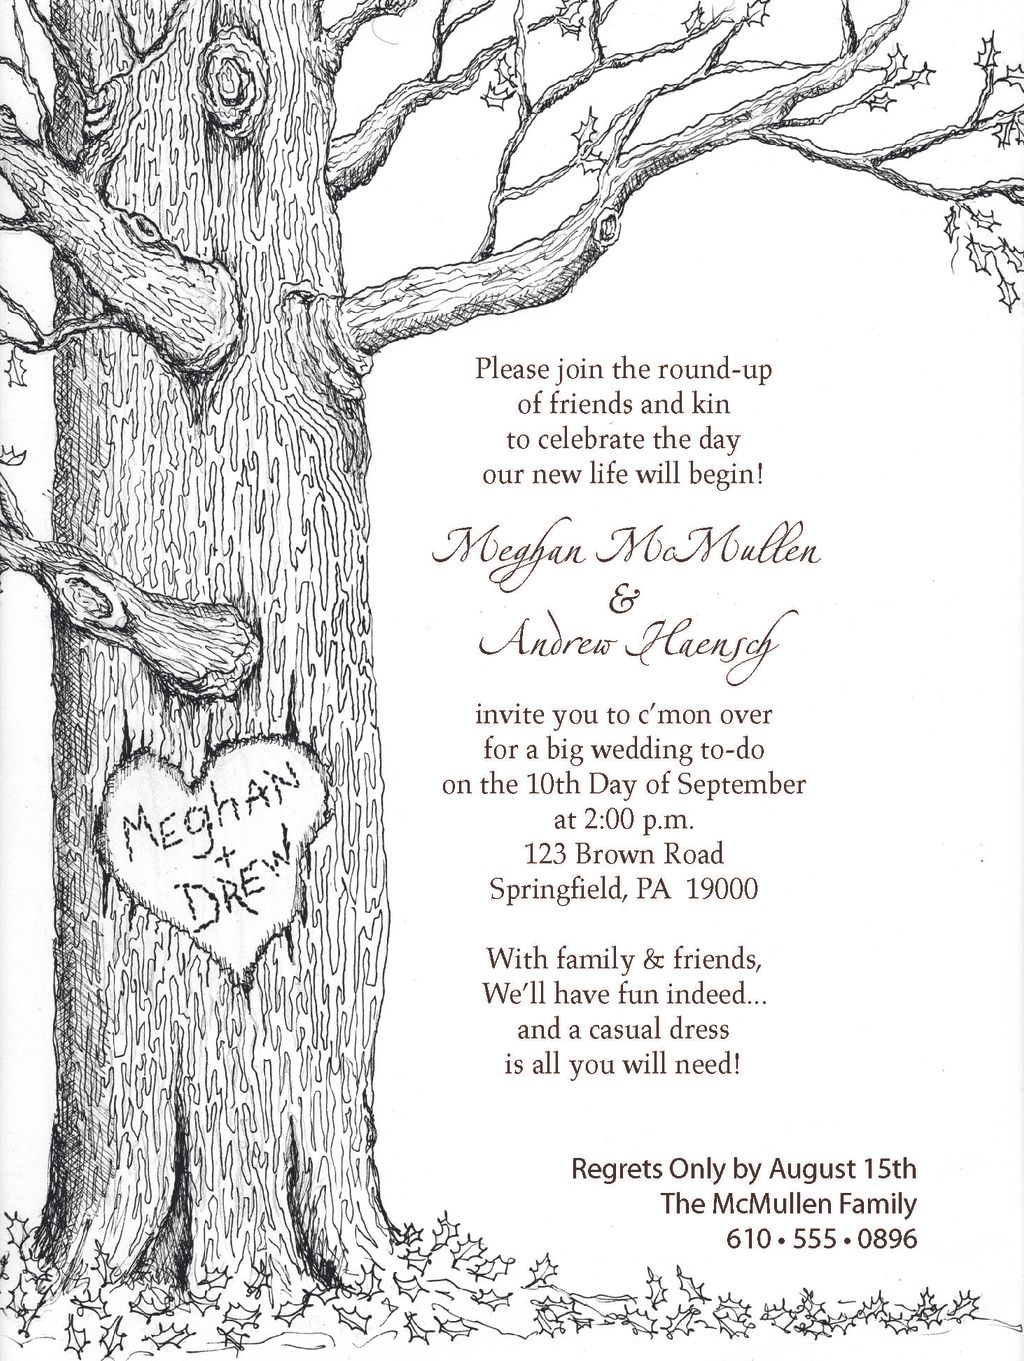 Please join the round-up
of friends and kin
to celebrate the day
our new life will begin!
Meghan McMullen
&
Andrew Haensch
invite you to c'mon over
for a big wedding to-do
on the 10th Day of September
at 2:00 p.m.
123 Brown Road
Springfield, PA 19000
With family & friends,
We'll have fun indeed...
and a casual dress
is all you will need!
Regrets Only by August 15th
The McMullen Family
610 • 555 • 0896
MEghAN
+
DREW